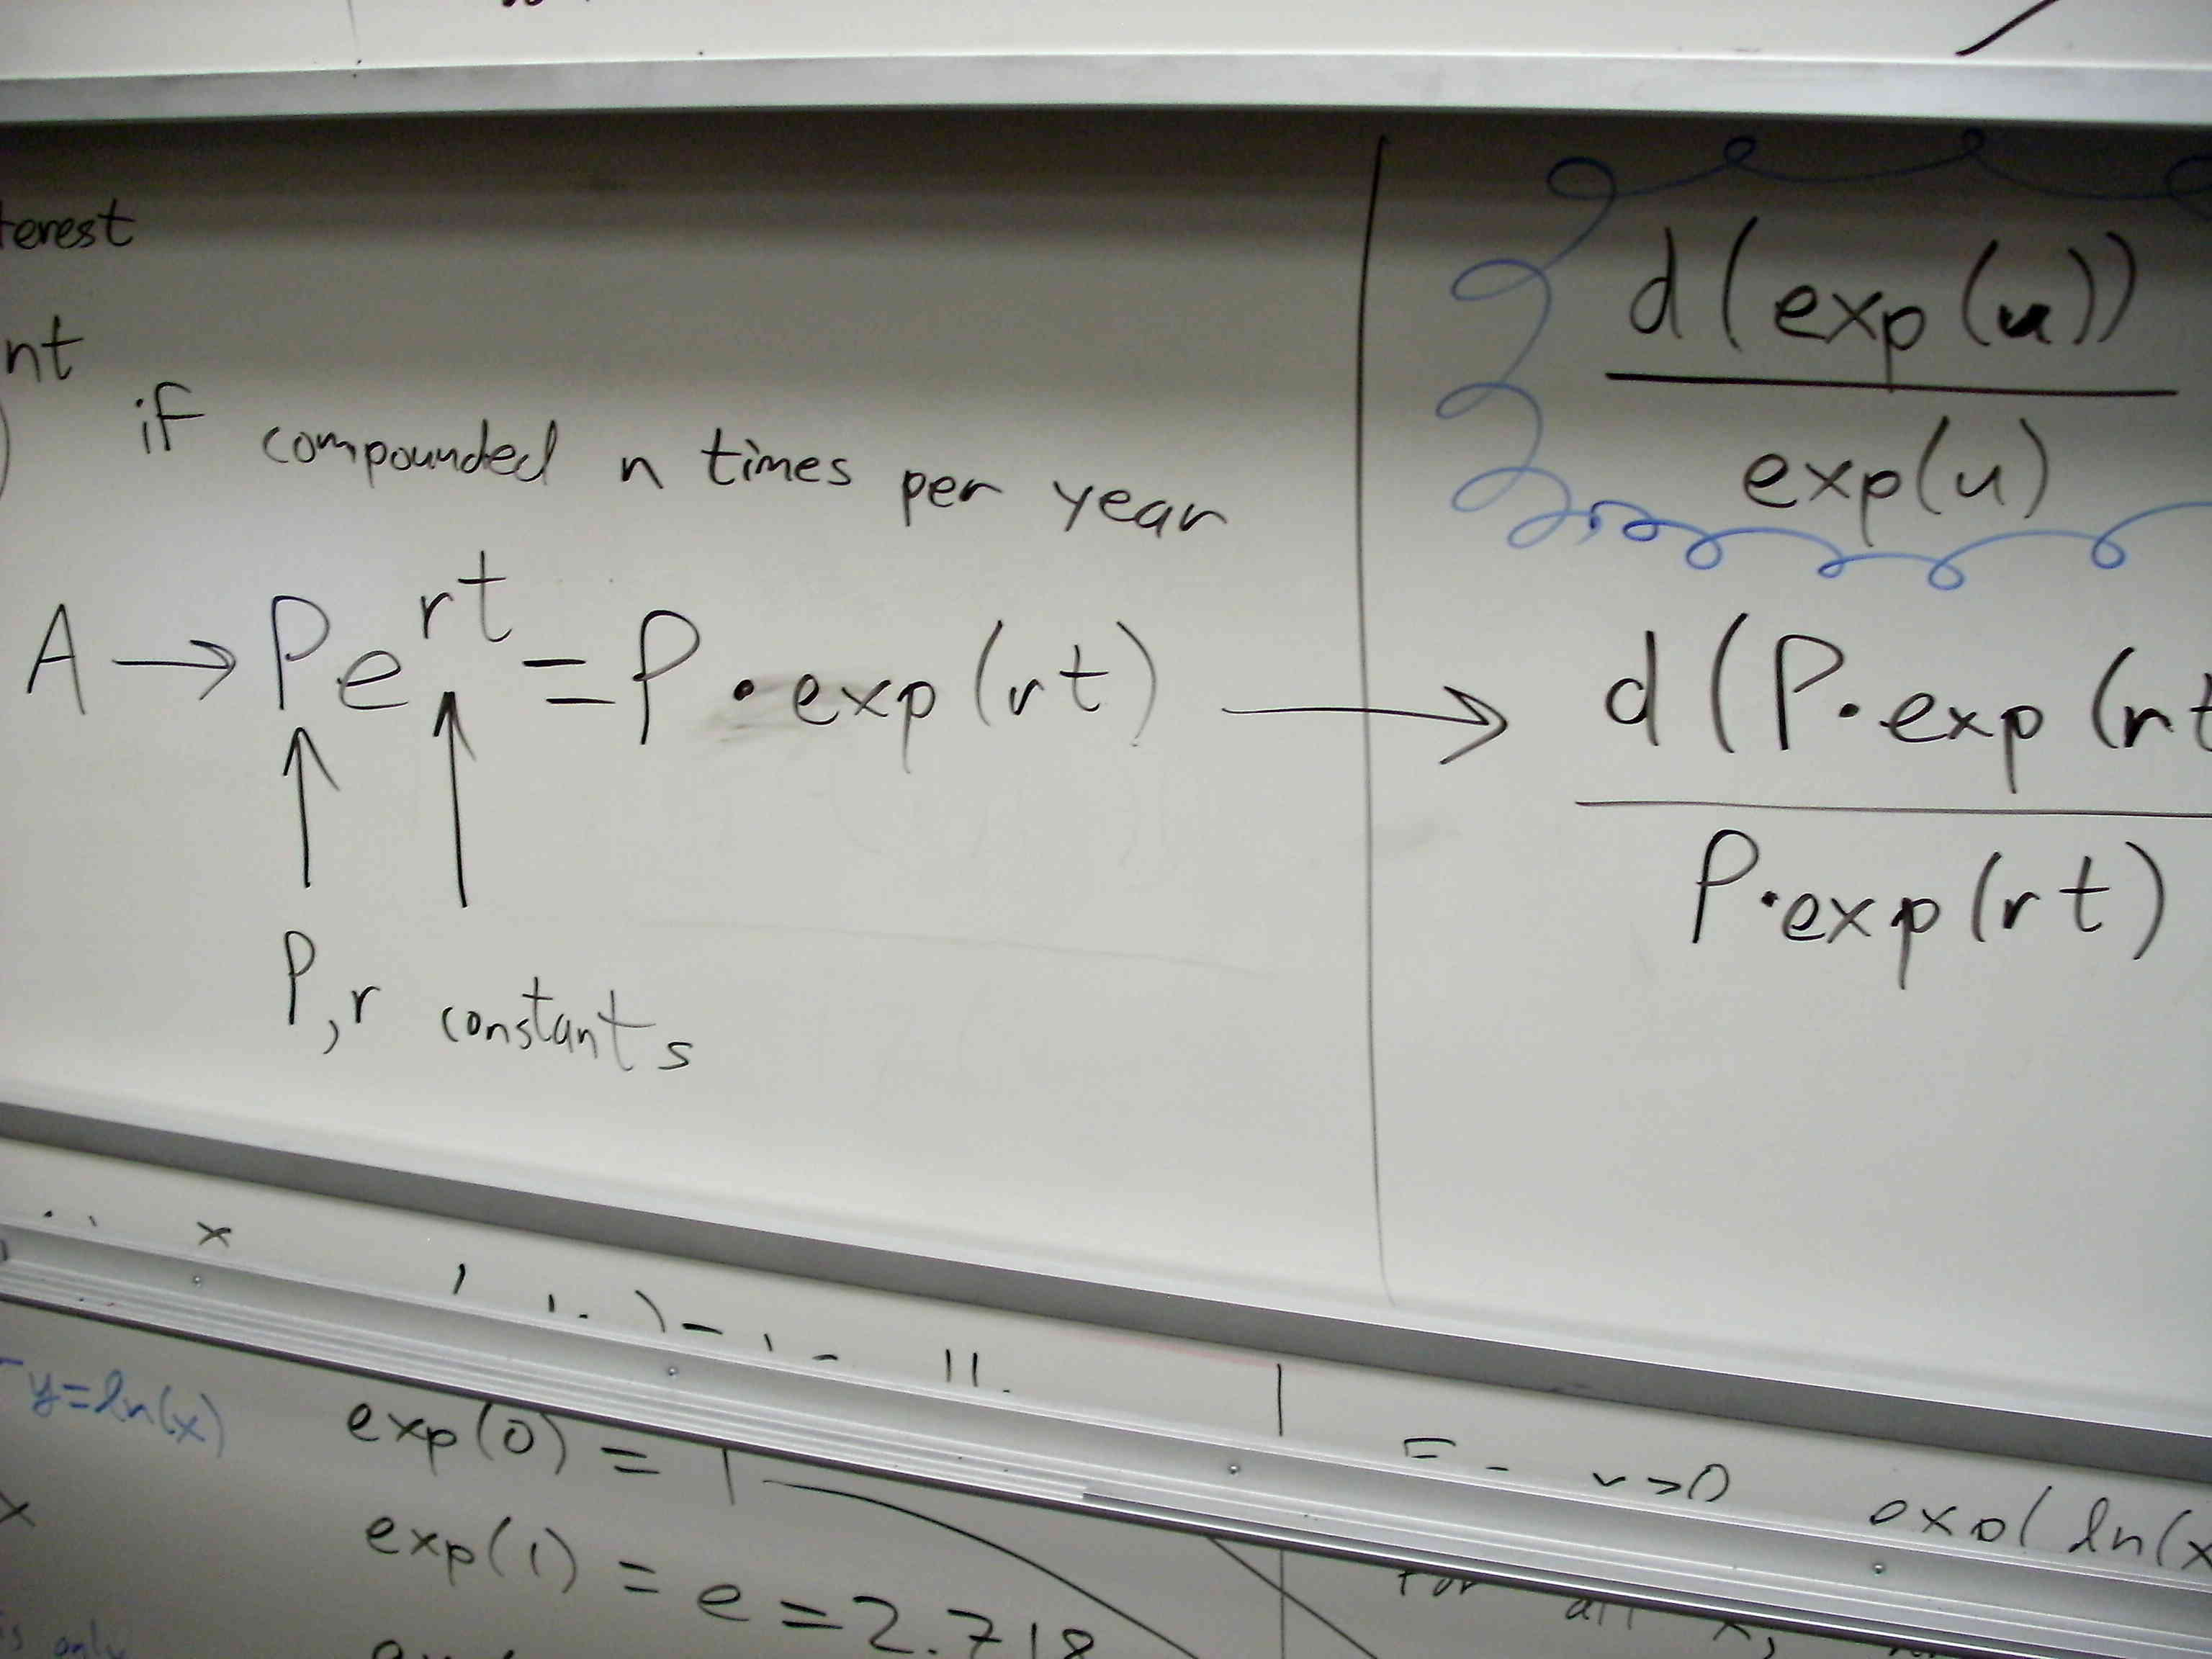 terest
nt
if compounded n times per year
A → Pe^rt = P · exp(rt) →
P, r constants
d(exp(u))
exp(u)
d(P·exp(rt
P·exp(rt)
y=ln(x)
exp(0) = 1
exp(1) = e = 2.718
x
exp(ln(x
for all x,
is only